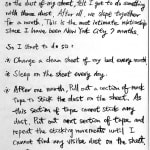 so the dust of my sheet, till I get to do something
with those dust. After all, we slept together
for a month. This is the most intimate relationship
since I have been New York City, 9 months.
So I start to do so:
Change a clean sheet of my bed every month.
Sleep on the sheet every day.
After one month, Pull out a section of
tape & stick the dust on the sheet. As
this section of tape cannot stick any
dust, Put out next section of tape, and
repeat the sticking movement until I
cannot find any visible dust on the sheet.